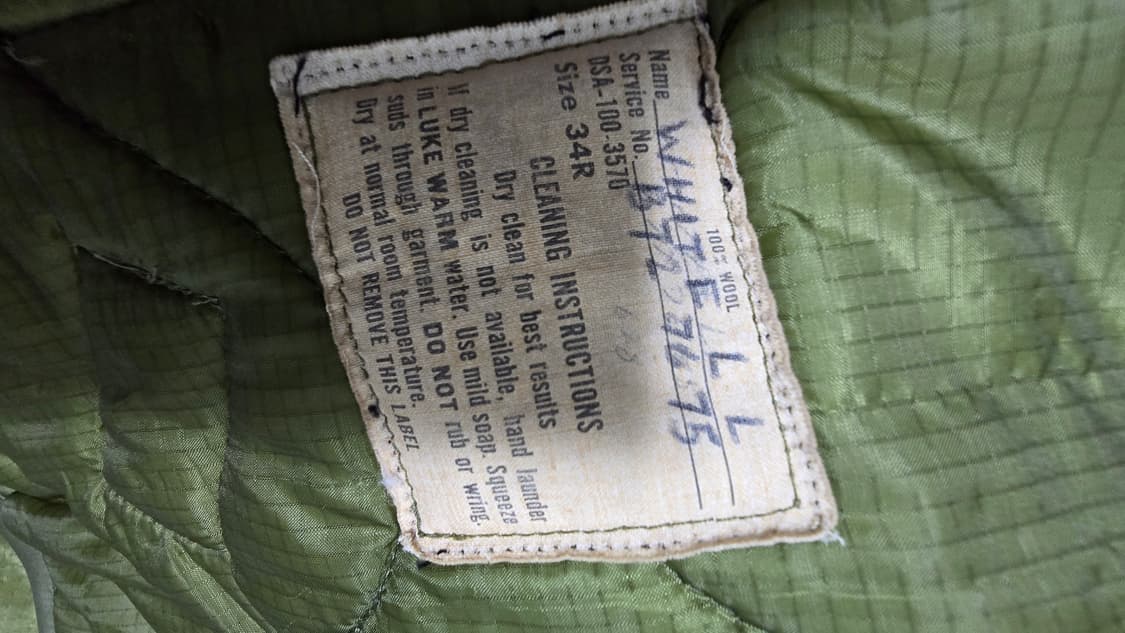 100% WOOL
Name
Service No.
DSA-100-3570
Size 34R
CLEANING INSTRUCTIONS
Dry clean for best results
If dry cleaning is not available, hand launder
in LUKE WARM water. Use mild soap. Squeeze
suds through garment. DO NOT rub or wring.
Dry at normal room temperature.
DO NOT REMOVE THIS LABEL